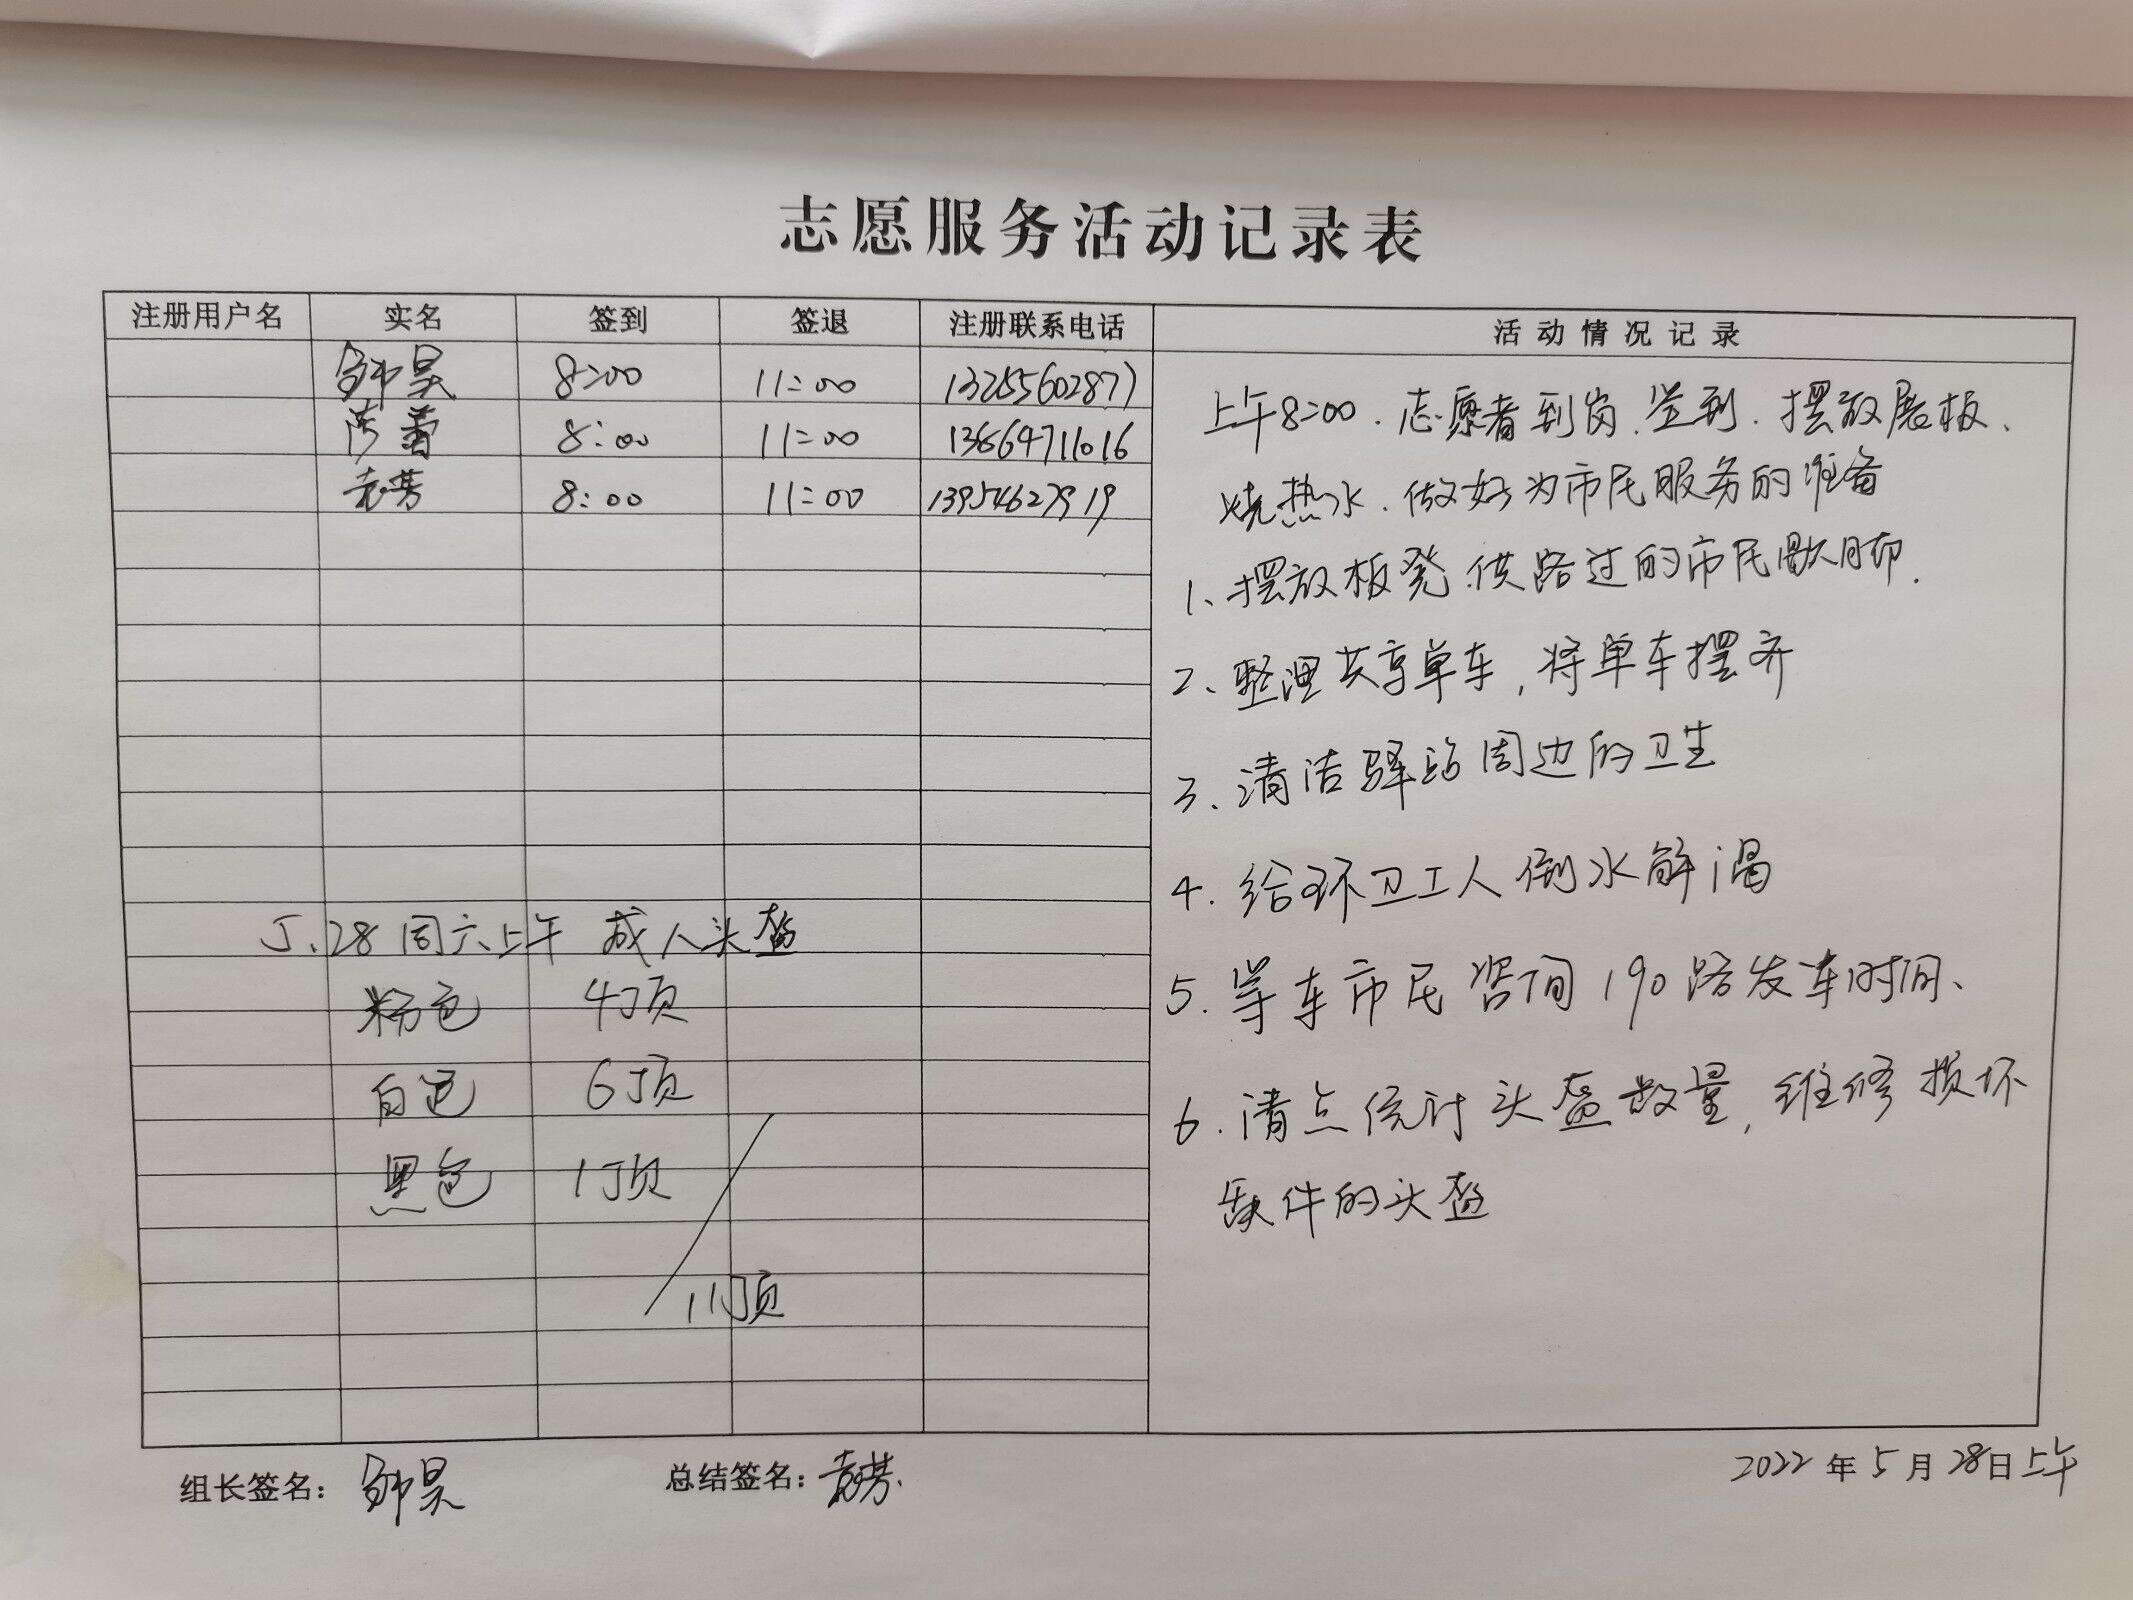 志愿服务活动记录表
注册用户名 实名 签到 签退 注册联系电话 活动情况记录
8:00 11:00 13255602877
8:00 11:00 13664711016
袁芳 8:00 11:00 13954627919
上午8:00.志愿者到岗.签到.摆放展板、
烧热水.做好为市民服务的准备
1、摆放板凳.供路过的市民歇脚.
2、整理共享单车,将单车摆齐
3、清洁驿站周边的卫生
4.给环卫工人倒水解渴
5.等车市民咨询190路发车时间、
6.清点统计头盔数量,维修损坏
缺件的头盔
5、28周六上午 成人头盔
粉色 4顶
白色 6顶
黑色 1顶
11顶
组长签名: 总结签名:袁芳.
2022年5月28日上午